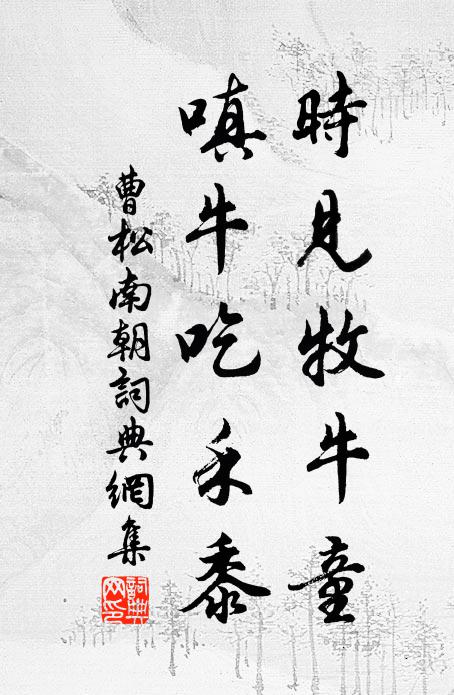 時見牧牛童
嗔牛吃禾黍
曹松南朝詞典網集